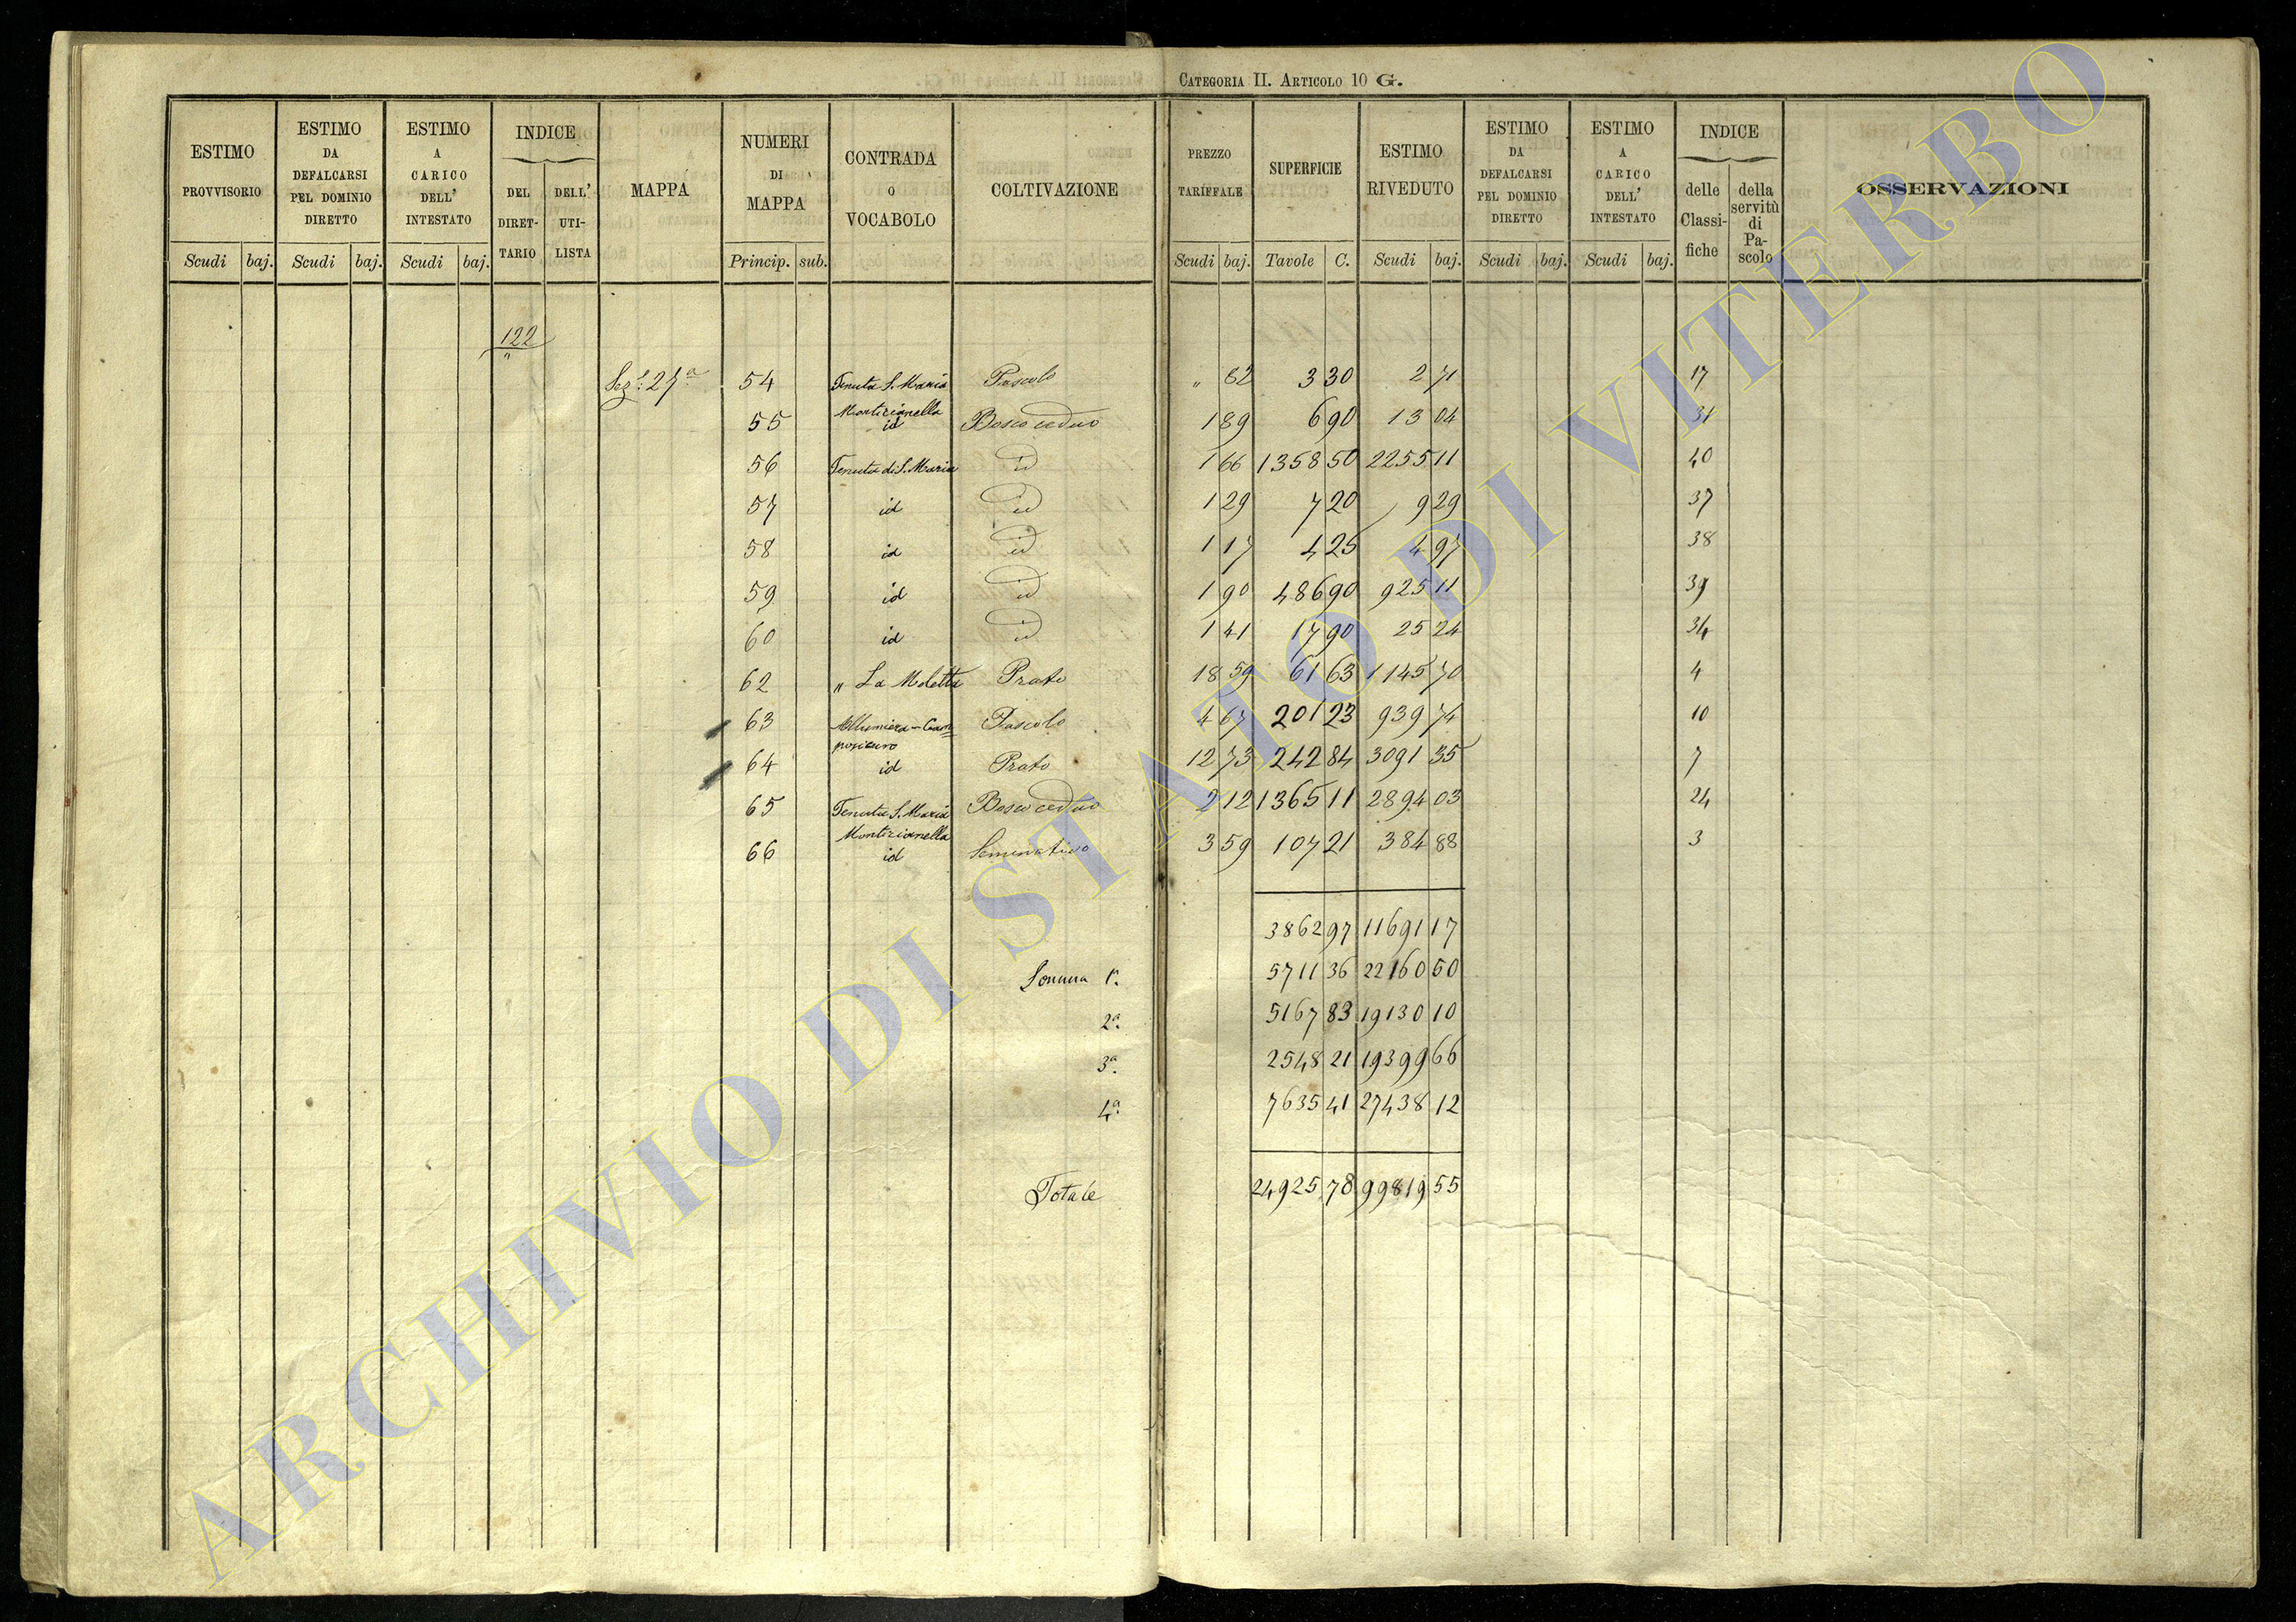 CATEGORIA II. ARTICOLO 10 G.
ESTIMO PROVVISORIO | ESTIMO DA DEFALCARSI PEL DOMINIO DIRETTO | ESTIMO A CARICO DELL' INTESTATO | INDICE DEL DIRETTARIO | DELL' UTILISTA | MAPPA | NUMERI DI MAPPA | CONTRADA O VOCABOLO | COLTIVAZIONE | PREZZO TARIFFALE | SUPERFICIE | ESTIMO RIVEDUTO | ESTIMO DA DEFALCARSI PEL DOMINIO DIRETTO | ESTIMO A CARICO DELL' INTESTATO | INDICE delle Classifiche | della servitù di Pascolo | OSSERVAZIONI
Scudi baj. Scudi baj. Scudi baj. Princip. sub. Scudi baj. Tavole C. Scudi baj. Scudi baj. Scudi baj.
122
"
Sez.e 27a 54 Tenuta S. Maria Pascolo " 82 3 30 2 71 17
Monticianella
55 id Bosco ceduo 1 89 6 90 13 04 31
56 Tenuta di S. Maria id 1 66 1358 50 2255 11 40
57 id id 1 29 7 20 9 29 37
58 id id 1 17 4 25 4 97 38
59 id id 1 90 486 90 925 11 39
60 id id 1 41 17 90 25 24 34
62 " La Moletta Prato 18 59 61 63 1145 70 4
63 Allumiera - Cam= Pascolo 4 67 201 23 939 74 10
64 id Prato 12 73 242 84 3091 35 7
65 Tenuta S. Maria Bosco ceduo 2 12 1365 11 2894 03 24
Monticianella
66 id Seminativo 3 59 107 21 384 88 3
3862 97 11691 17
Somma 1a. 5711 36 22160 50
2a. 5167 83 19130 10
3a. 2548 21 19399 66
4a. 7635 41 27438 12
Totale 24925 78 99819 55
ARCHIVIO DI STATO DI VITERBO